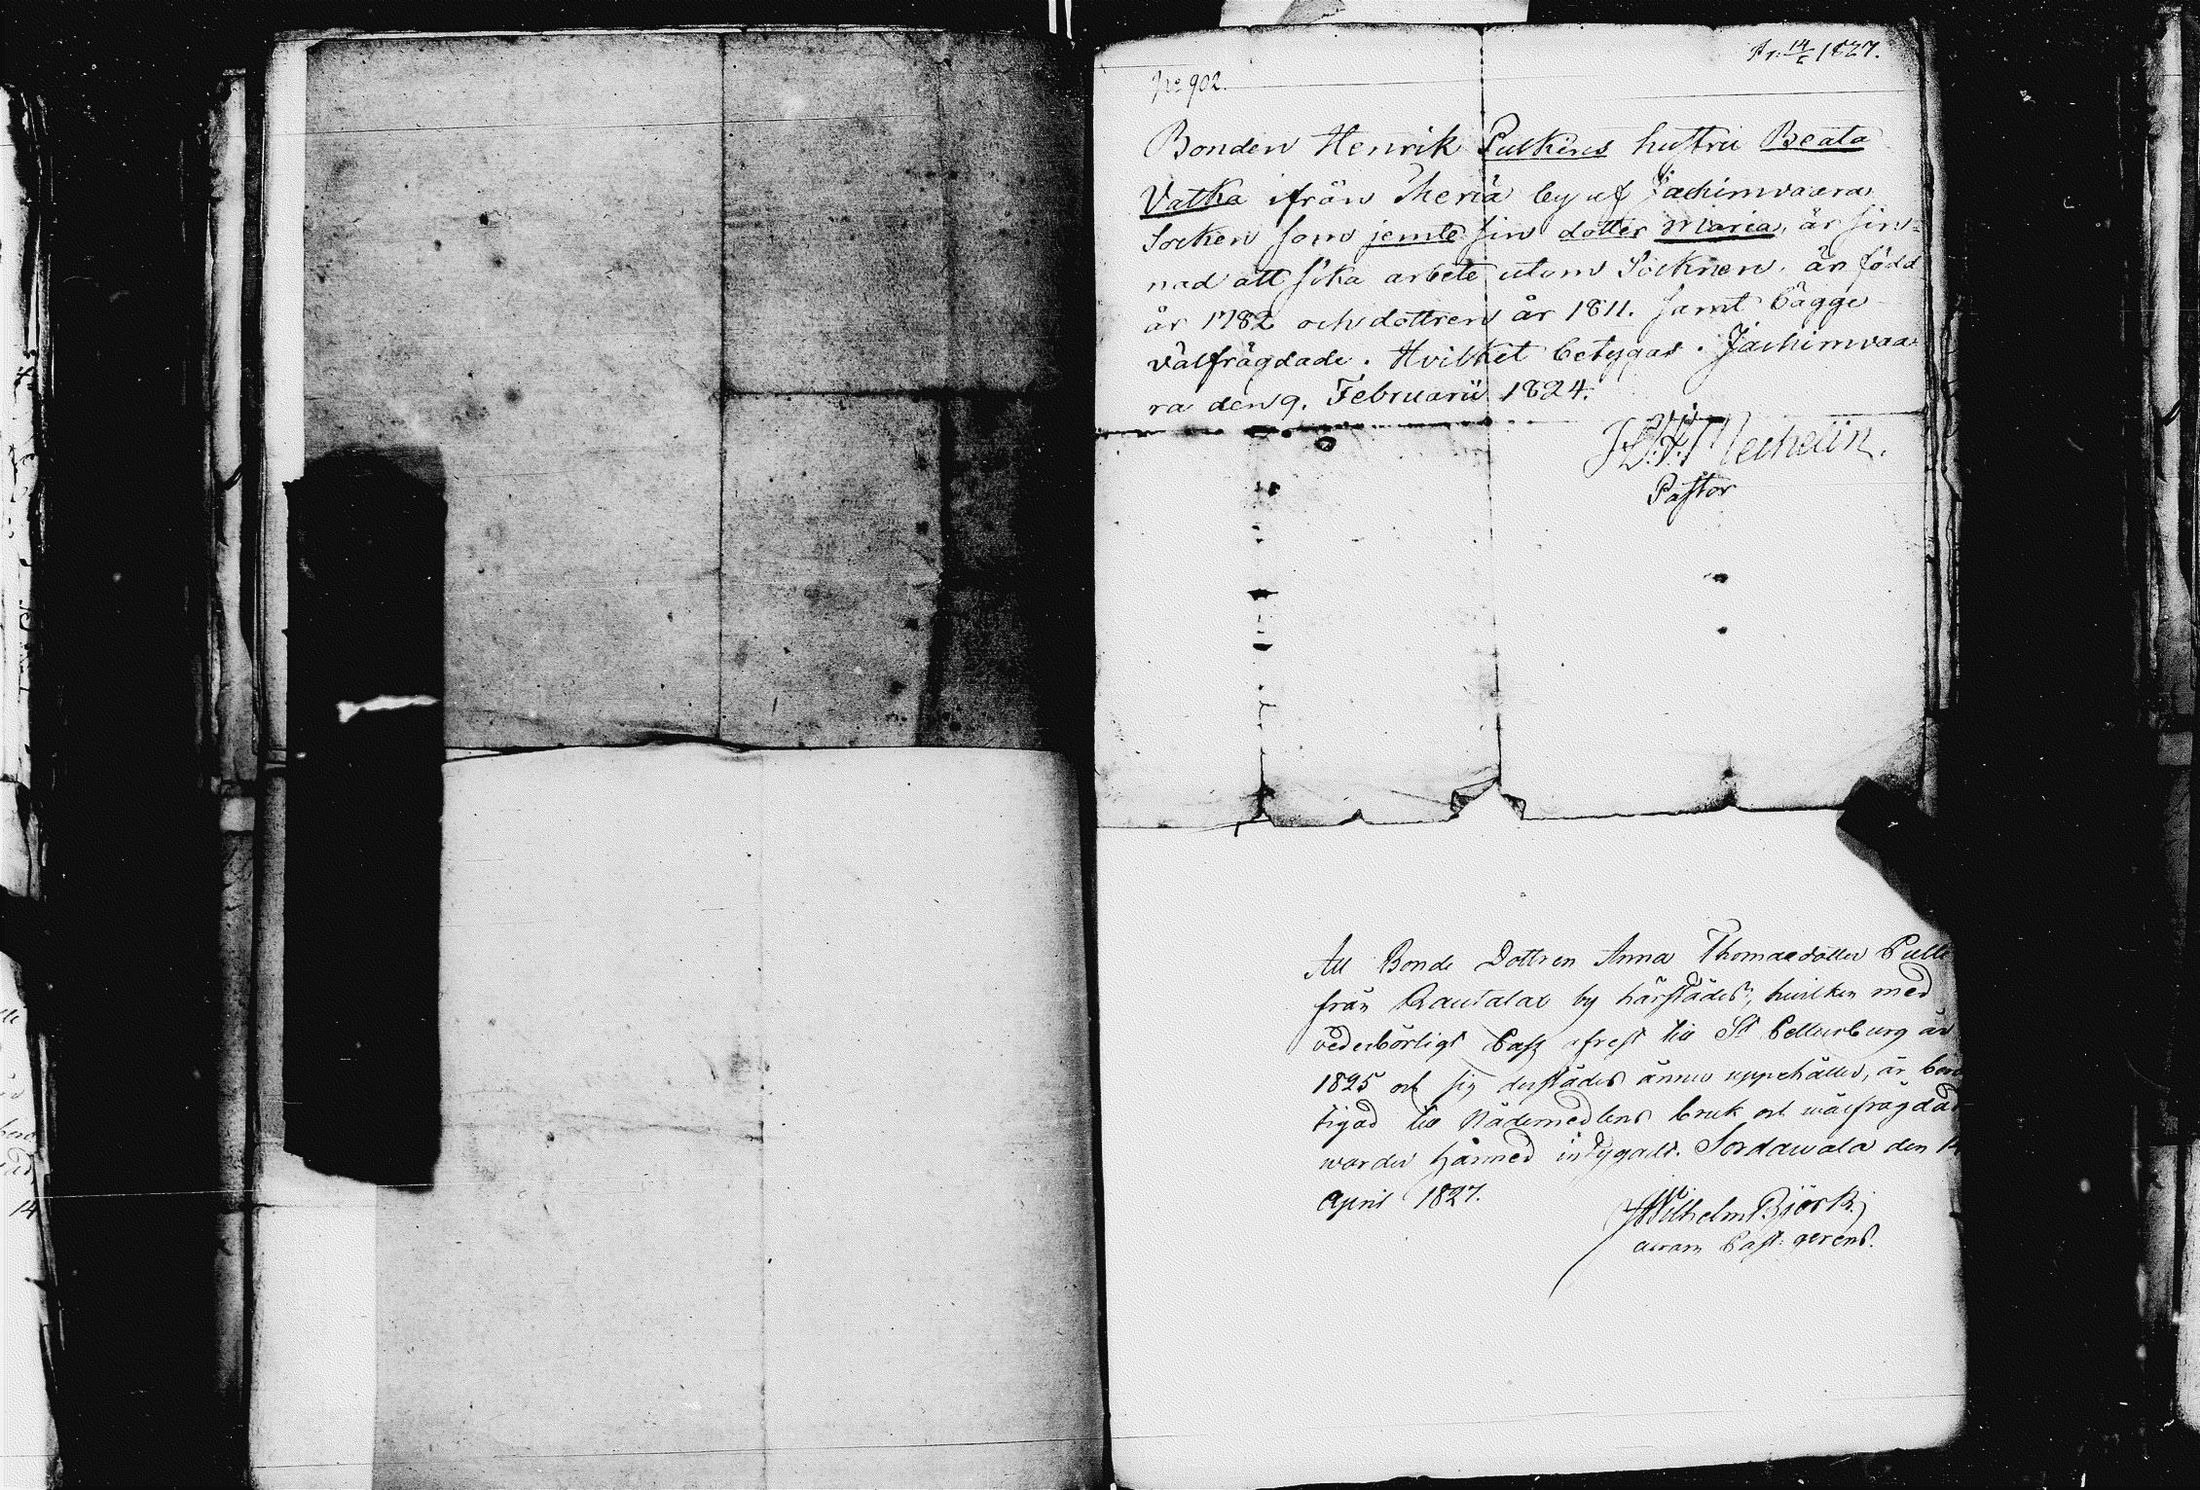 Pr. 14/5 1827.
No 902.
Bonden Henrik Putkins hustru Beata
Vatka ifrån Meriä by af Jachimvaara
Socken som jemte sin dotter Maria, är sin=
nad att söka arbete utom Socknen, är född
år 1782 och dottren år 1811. samt bägge
välfrägdade. Hvilket betygas. Jachimvaa=
ra den 9. Februarii 1824.
Mechelin.
Pastor
Att Bonde Dottren Anna Thomasdotter Pulli
från Rautalax by härstädes, hvilken med
vederbörligt Pass afrest till St Pettersburg år
1825 och sig derstädes ännu uppehåller, är berät
tigad till Nådemedlens bruk och wälfrägdad
warder härmed intygadt. Sordawala den 14
April 1827.
Wilhelm Björk.
Past: gerens.
14